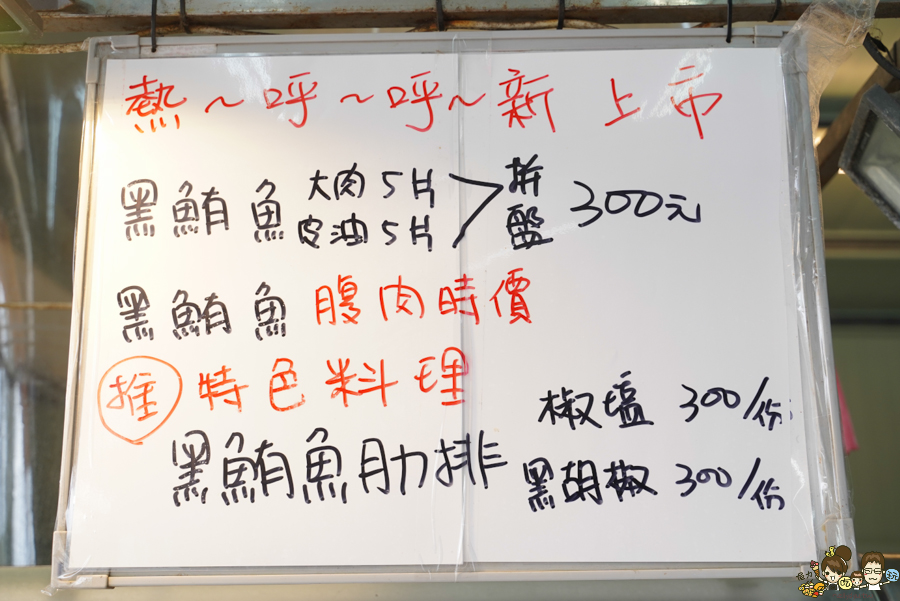 熱~呼~呼~新上市
黑鮪魚 大肉5片 拚盤 300元
皮油5片
黑鮪魚 腹肉時價
推 特色料理
黑鮪魚肋排
椒塩 300/份
黑胡椒 300/份